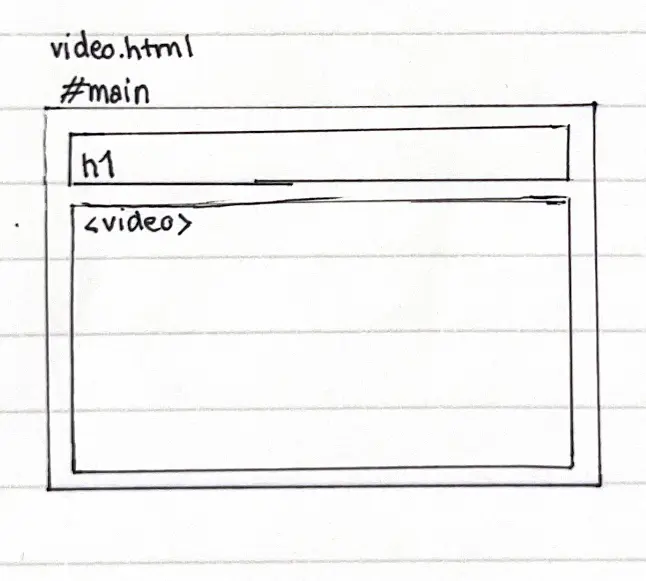 video.html
#main
h1
<video>